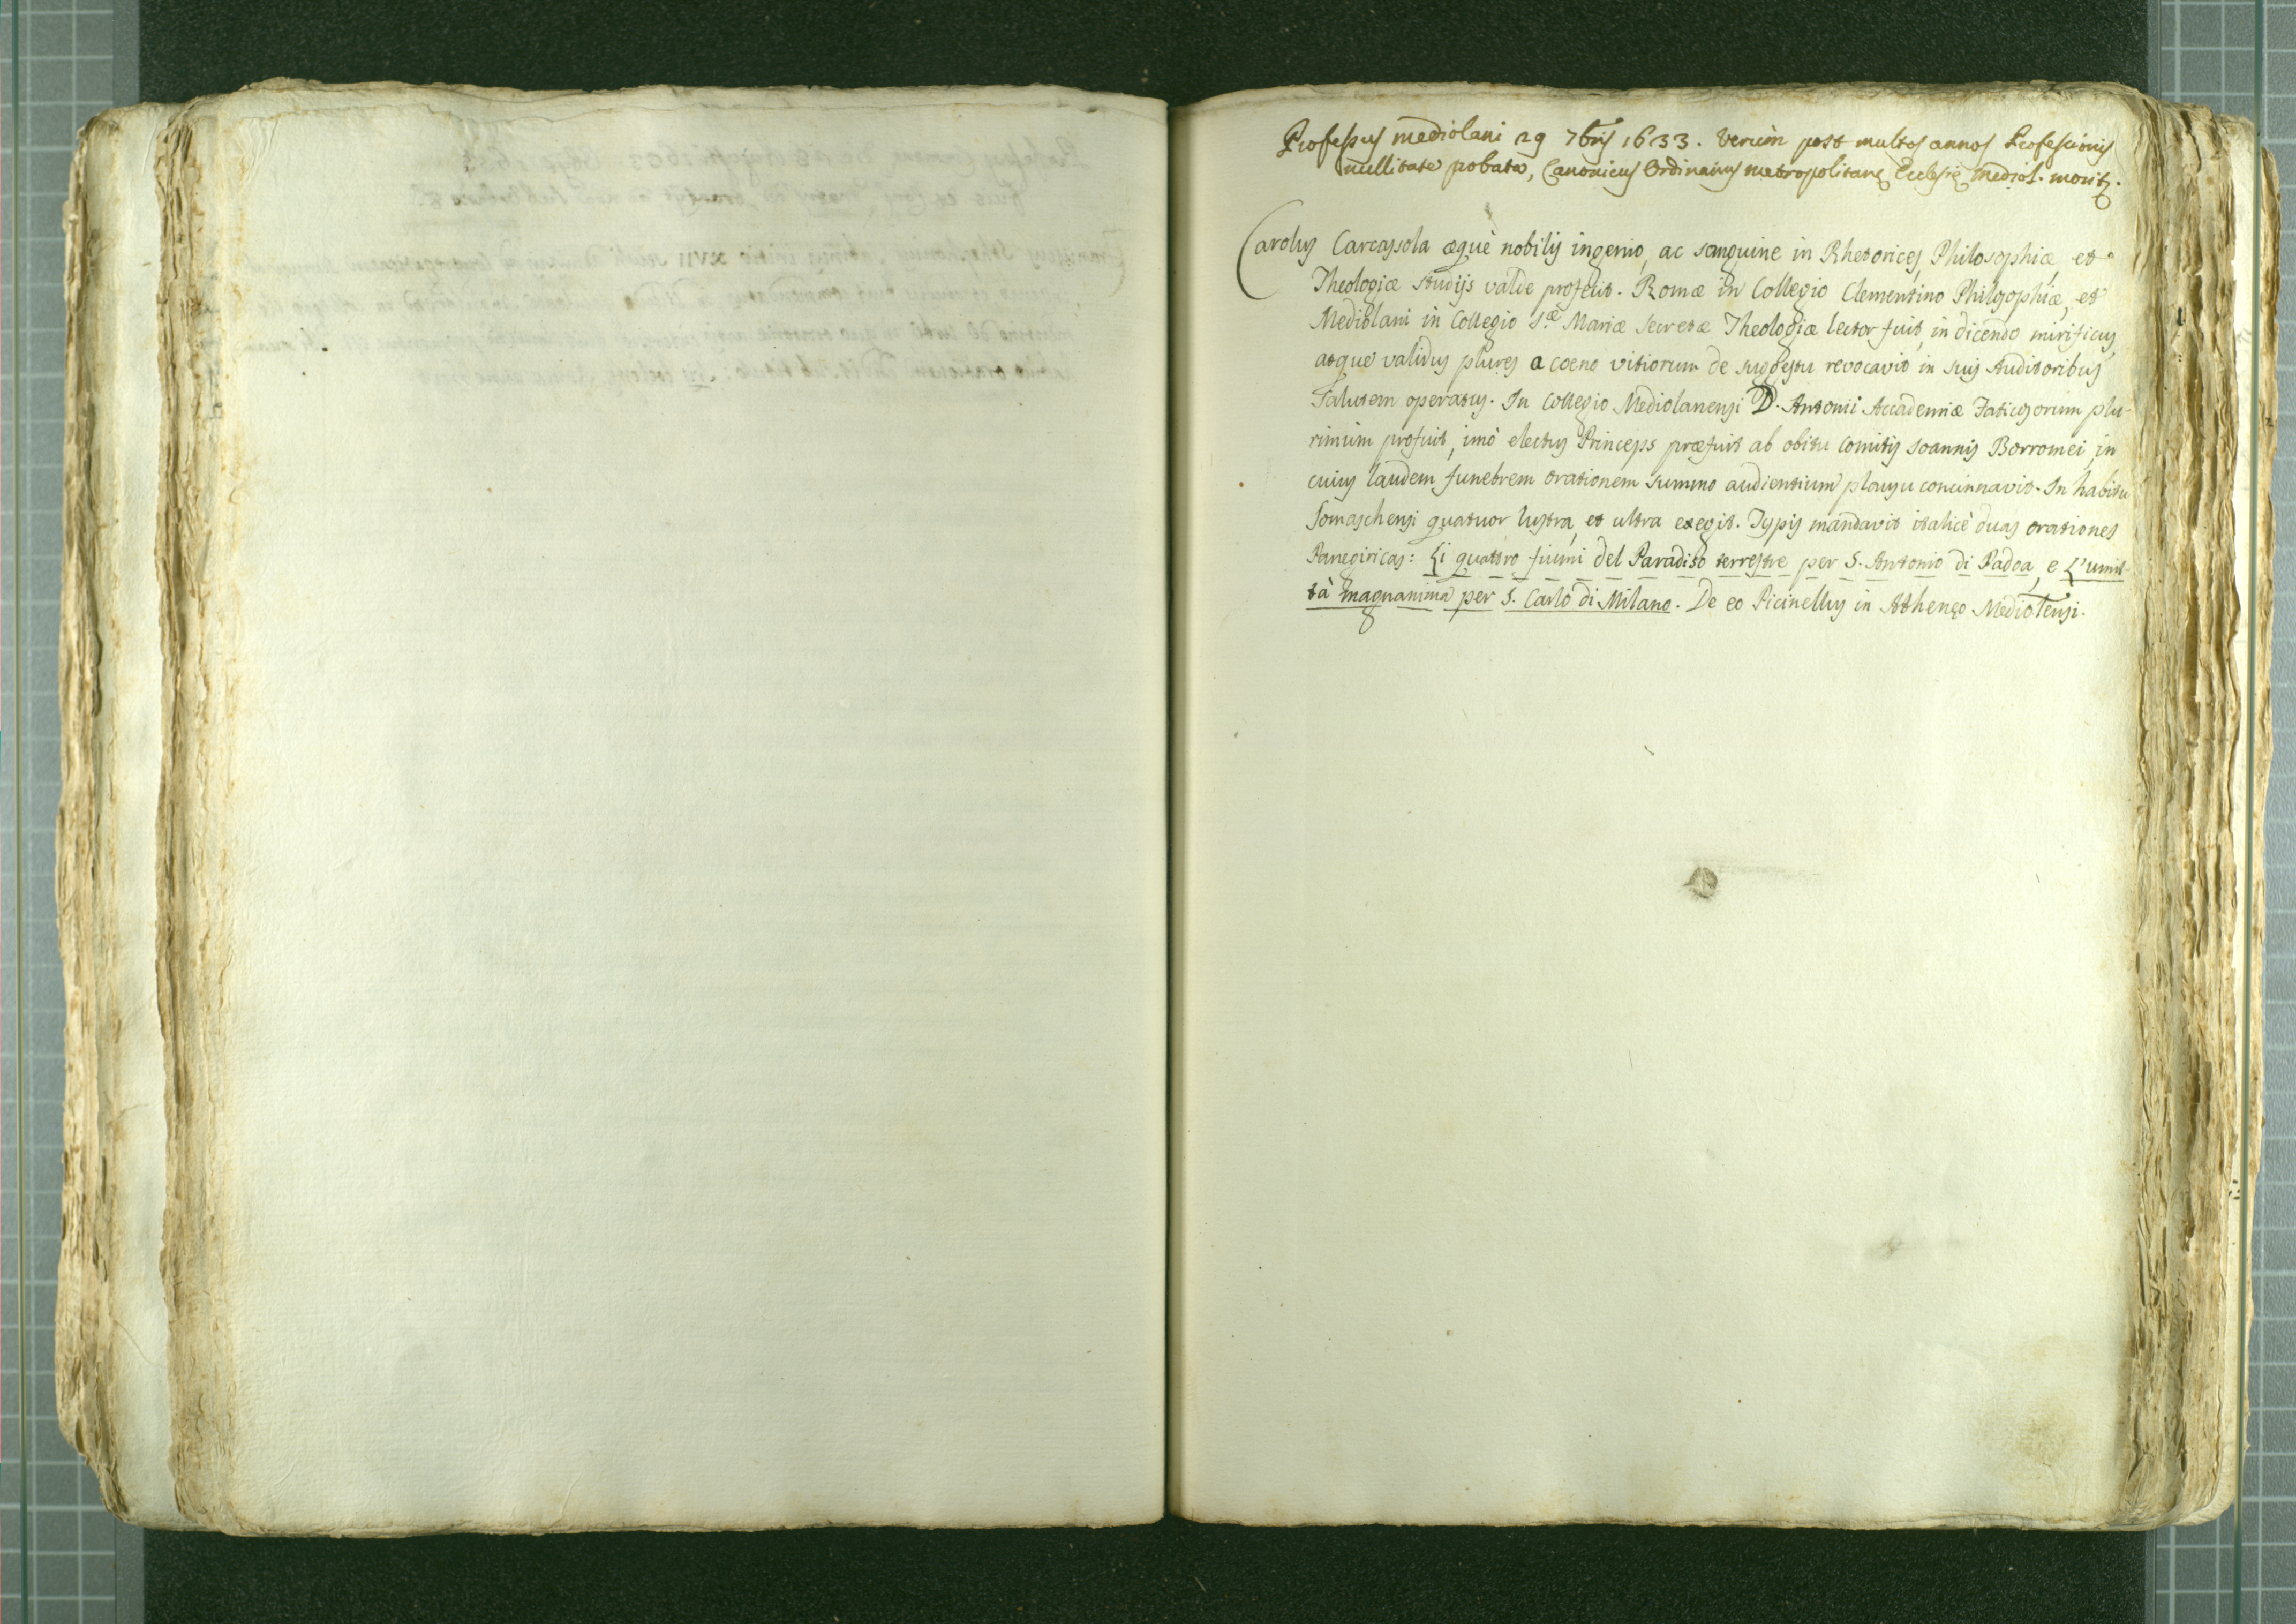 Professus Mediolani 29 7bris 1633. Verùm post multos annos Professionis
nullitate probata, Canonicus Ordinarius Metropolitanę Ecclesię Mediol. morit.
Carolus Carcassola æquè nobilis ingenio, ac sanguine in Rhetorices, Philosophiæ, et
Theologiæ studijs valde profecit. Romæ in Collegio Clementino Philosophiæ, et
Mediolani in Collegio S.æ Mariæ Secretæ Theologiæ lector fuit, in dicendo mirificus,
atque validus plures a coeno vitiorum de suggestu revocavit in suis Auditoribus
Salutem operatus. In Collegio Mediolanensi D. Antonii Accademiæ Faticosorum plu-
rimùm profuit, imò electus Princeps præfuit ab obitu Comitis Joannis Borromei, in
cuius laudem funebrem orationem summo audientium plausu concinnavit. In habitu
Somaschensi quatuor lustra, et ultra exegit. Typis mandavit italicè duas orationes
Panegiricas: Li quattro fiumi del Paradiso terrestre per S. Antonio di Padoa, e L'umil-
tà magnanima per S. Carlo di Milano. De eo Picinellus in Athenęo Mediolensi.